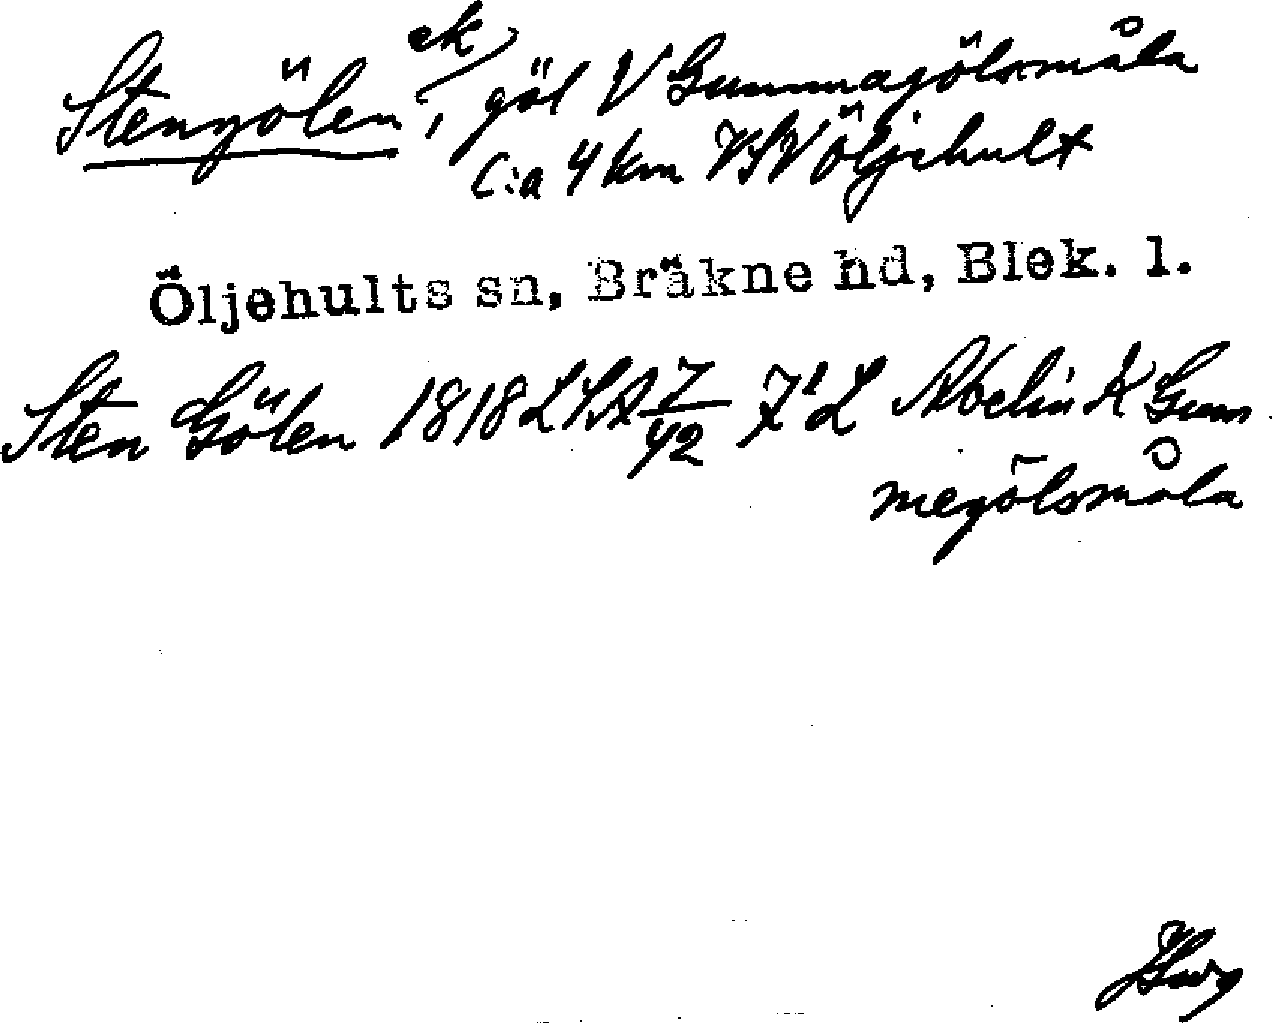 Stengölen, ek, göl V Gummagölsmåla
C:a 4 km VSV Öljehult
Öljehults sn, Bräkne hd, Blek. l.
Sten Gölen 1818 LSA 7/42 Abelin K Gum
megölsmåla